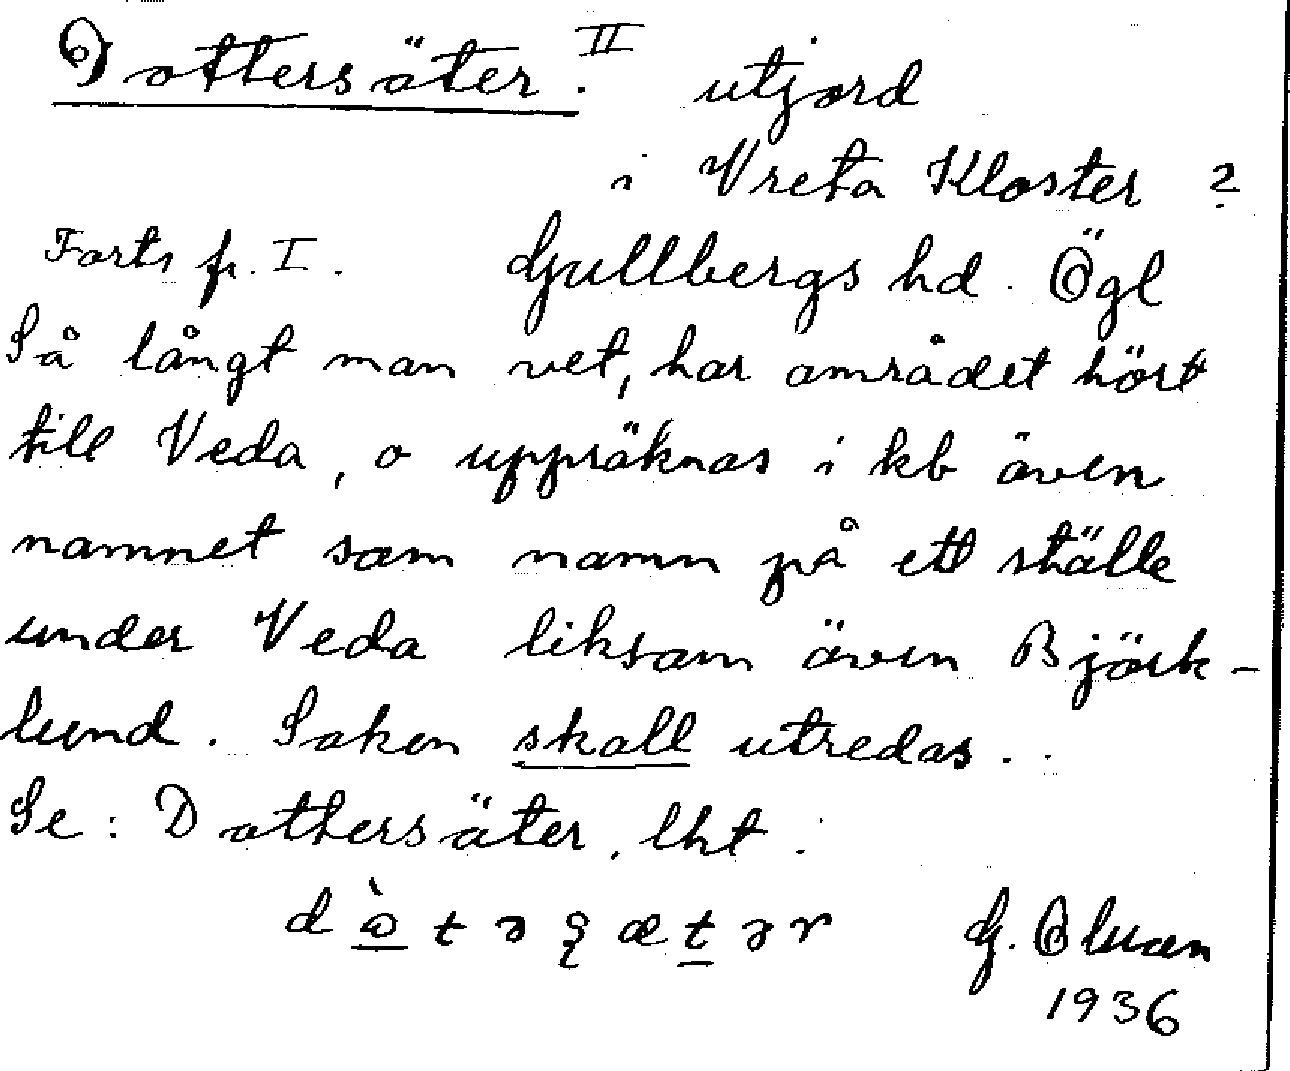 Dottersäter. II utjord
i Vreta Kloster ?
Forts fr. I. Gullbergs hd. Ögl
Så långt man vet, har området hört
till Veda, o uppräknas i kb även
namnet som namn på ett ställe
under Veda liksom även Björk-
lund. Saken skall utredas.
Se: Dottersäter, lht.
G. Olsson
1936